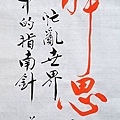 思
忙亂世界
的指南針